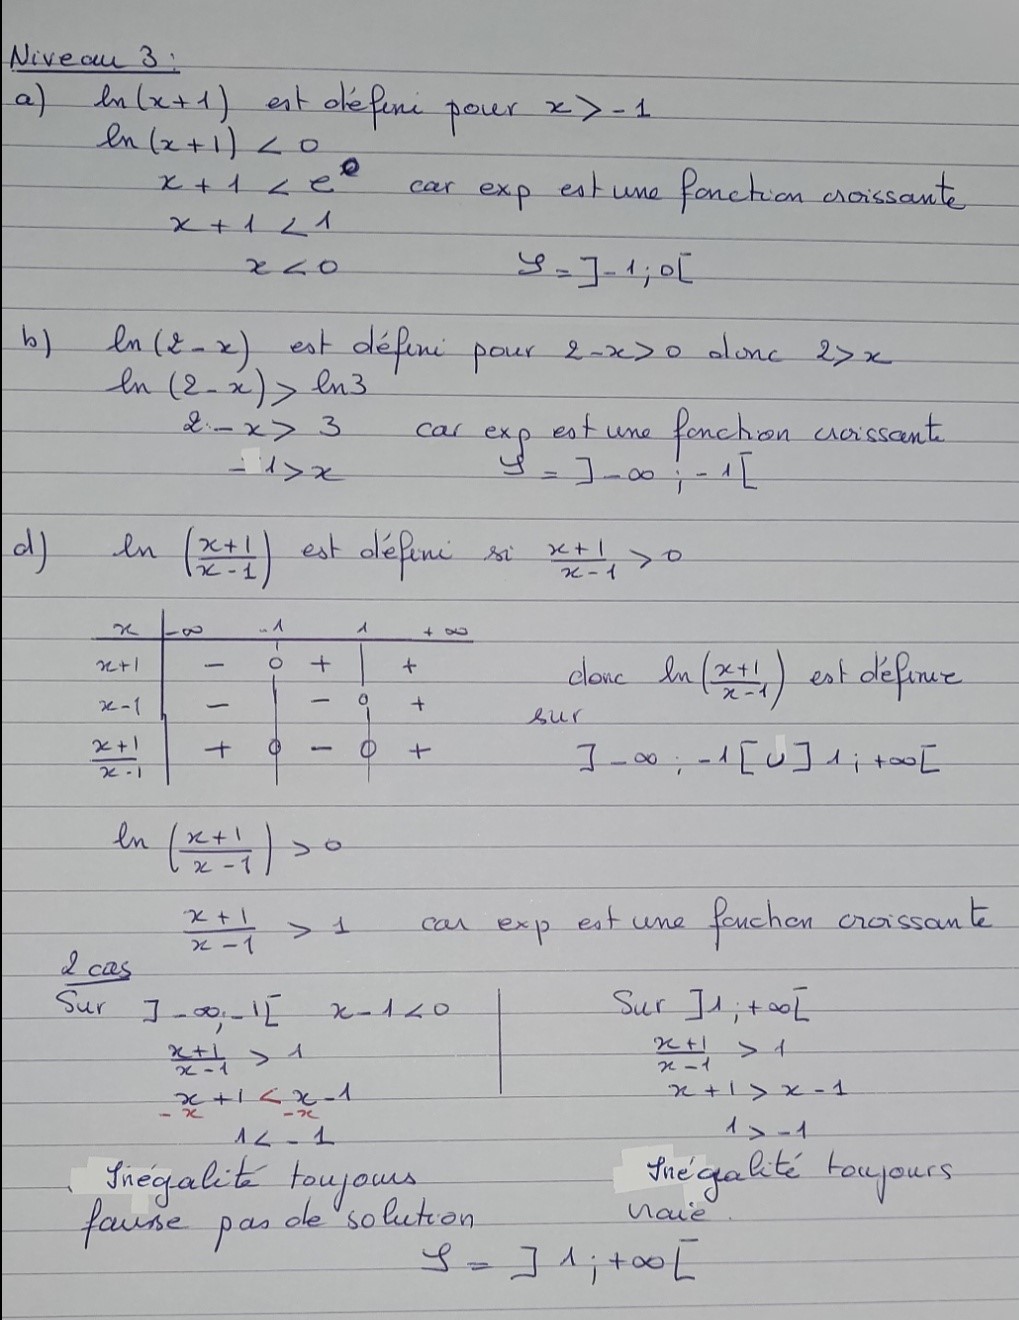 Niveau 3 :
a) ln(x+1) est défini pour x > -1
ln(x+1) < 0
x + 1 < e⁰ car exp est une fonction croissante
x + 1 < 1
x < 0 𝒮 = ]-1 ; 0[
b) ln(2-x) est défini pour 2-x > 0 donc 2 > x
ln(2-x) > ln3
2-x > 3 car exp est une fonction croissante
-1 > x 𝒮 = ]-∞ ; -1[
d) ln((x+1)/(x-1)) est défini si (x+1)/(x-1) > 0
x | -∞ -1 1 +∞
x+1 | - 0 + | +
x-1 | - | - 0 +
(x+1)/(x-1) | + 0 - 0 +
donc ln((x+1)/(x-1)) est définie
sur
]-∞ ; -1[ ∪ ]1 ; +∞[
ln((x+1)/(x-1)) > 0
(x+1)/(x-1) > 1 car exp est une fonction croissante
2 cas
Sur ]-∞ ; -1[ x-1 < 0
(x+1)/(x-1) > 1
x+1 < x-1
-x -x
1 < -1
Inégalité toujours
fausse pas de solution
Sur ]1 ; +∞[
(x+1)/(x-1) > 1
x+1 > x-1
1 > -1
Inégalité toujours
vraie.
𝒮 = ]1 ; +∞[